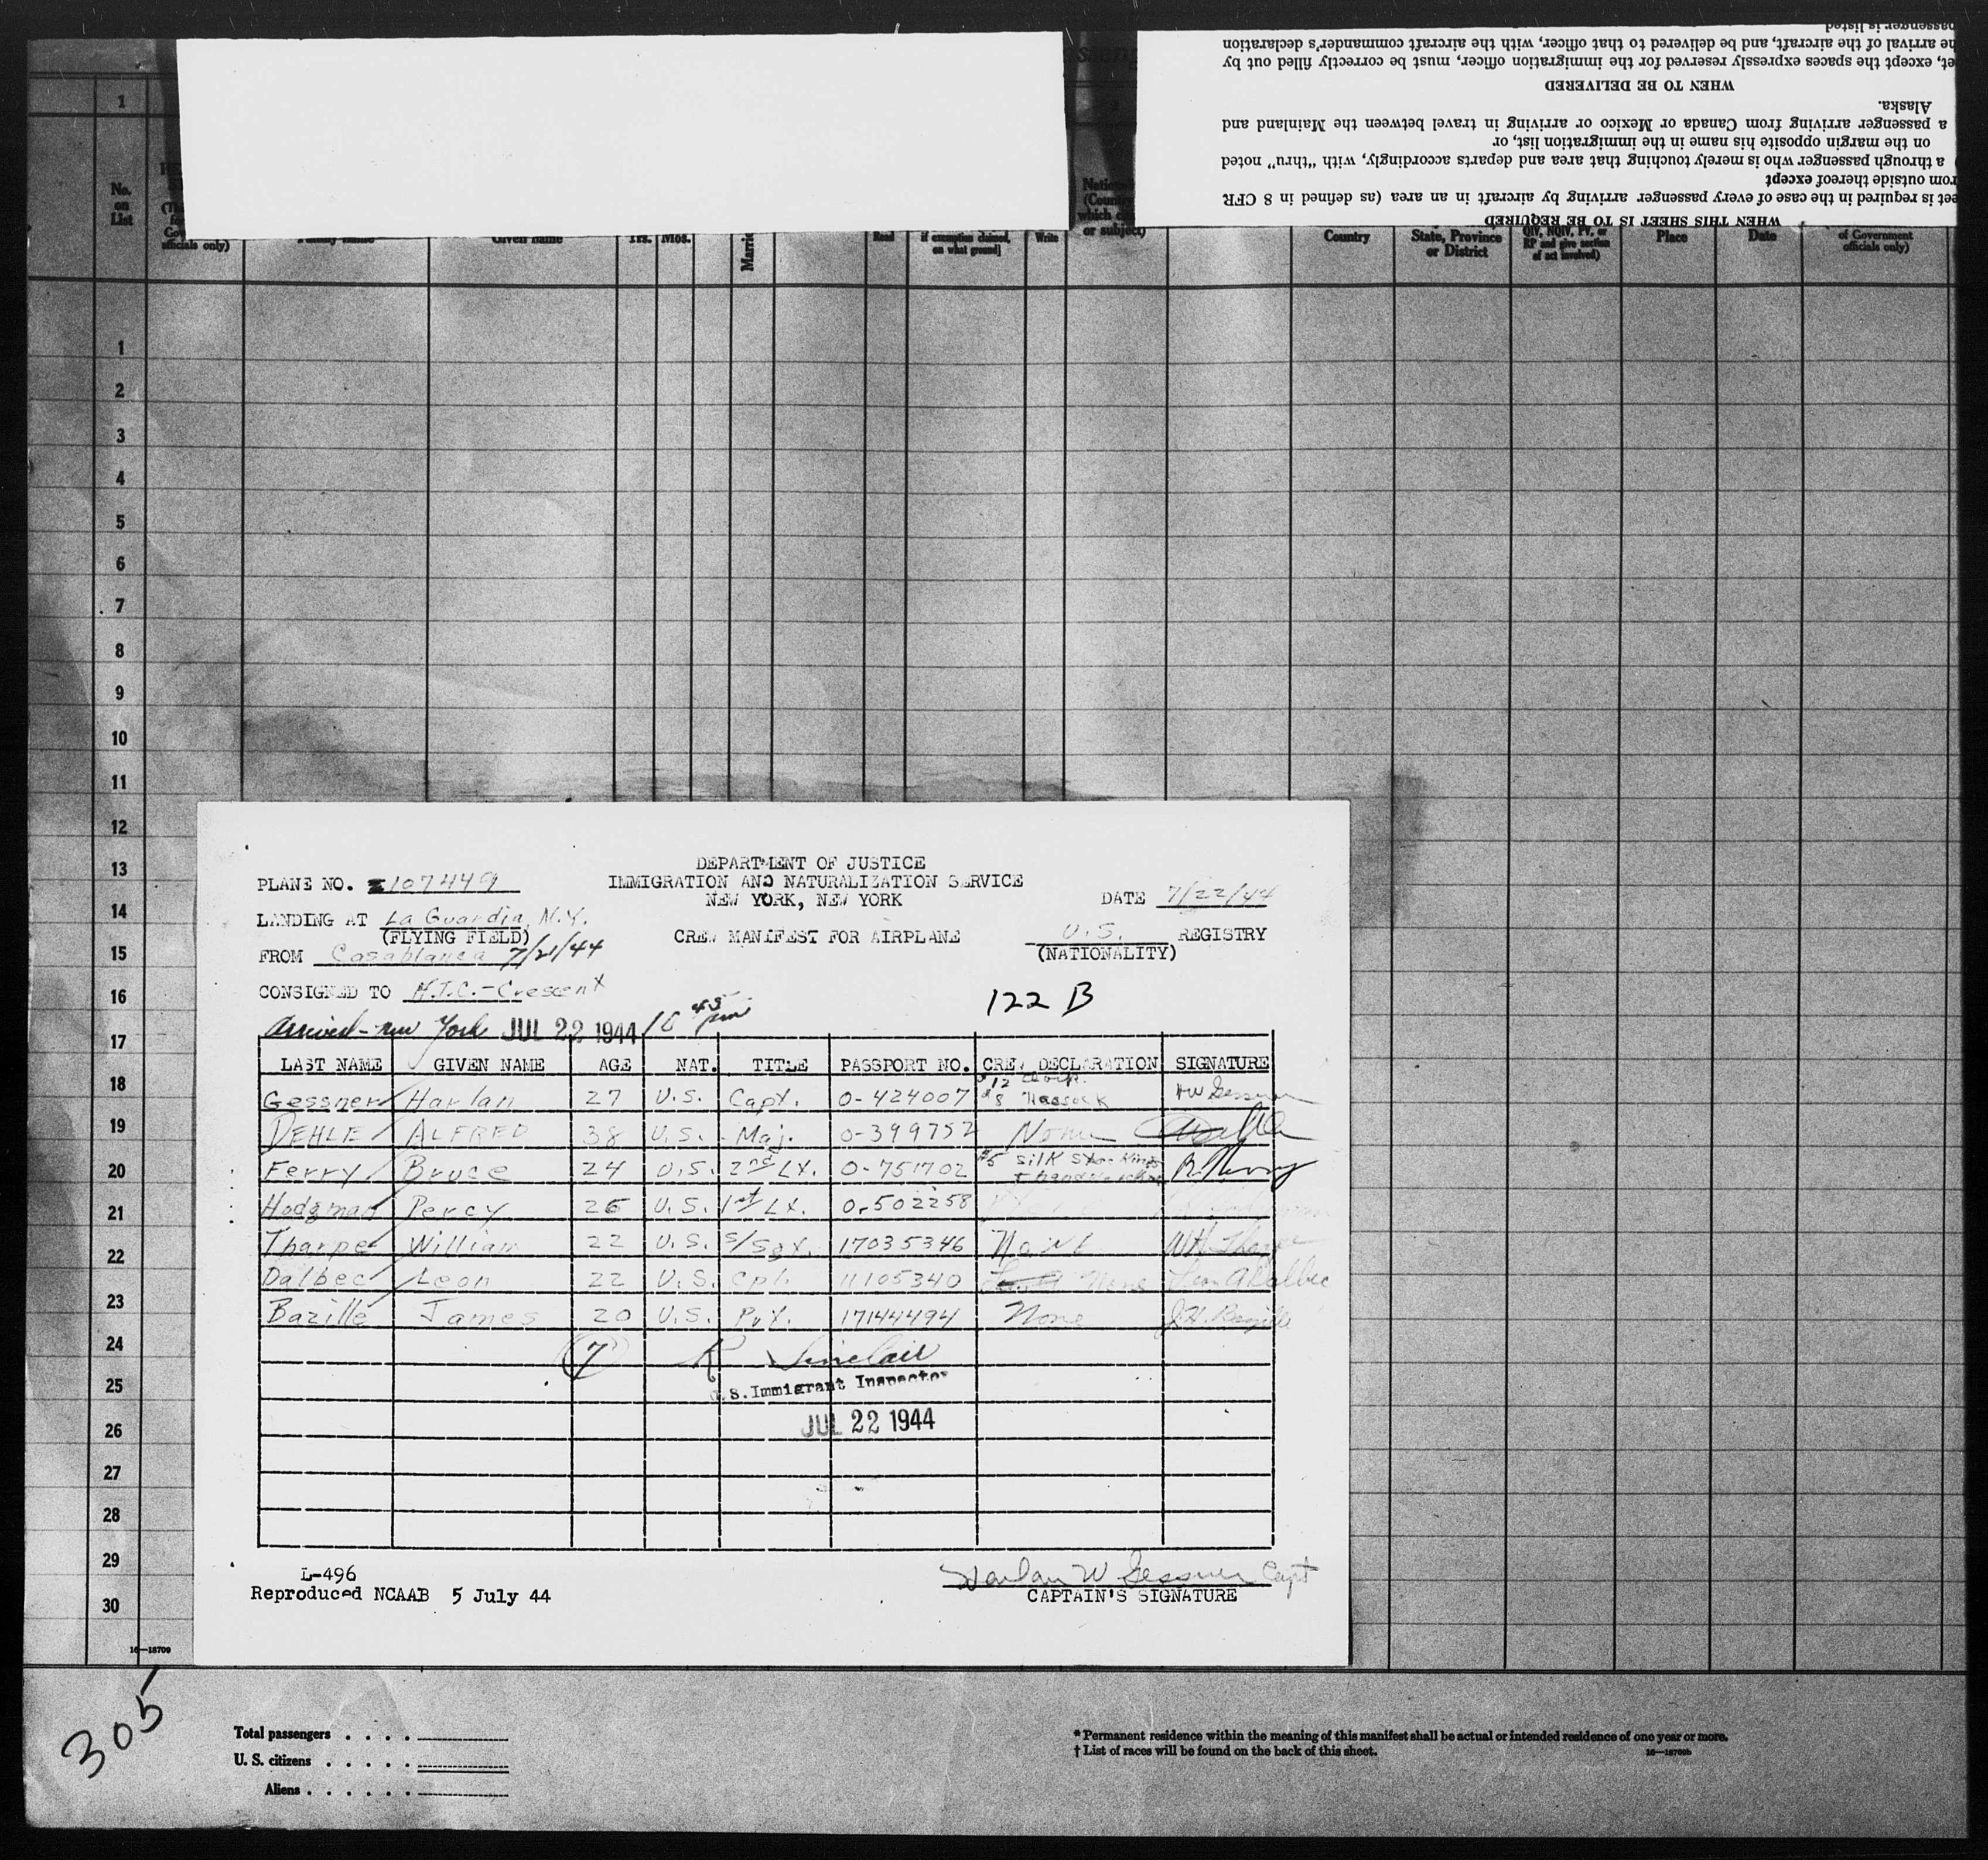 passenger is listed
the arrival of the aircraft, and be delivered to that officer, with the aircraft commander's declaration
et, except the spaces expressly reserved for the immigration officer, must be correctly filled out by
WHEN TO BE DELIVERED
Alaska.
a passenger arriving from Canada or Mexico or arriving in travel between the Mainland and
on the margin opposite his name in the immigration list, or
a through passenger who is merely touching that area and departs accordingly, with "thru" noted
rom outside thereof except
eet is required in the case of every passenger arriving by aircraft in an area (as defined in 8 CFR
WHEN THIS SHEET IS TO BE REQUIRED
1
No. on List
officials only)
Family name Given name Yrs. Mos.
Read if exemption claimed, on what ground] Write
which
or subject)
Country State, Province or District QIV, NQIV, PV, or RP and give section of act involved) Place Date of Government officials only)
1
2
3
4
5
6
7
8
9
10
11
12
13
14
15
16
17
18
19
20
21
22
23
24
25
26
27
28
29
30
16—18709
DEPARTMENT OF JUSTICE
IMMIGRATION AND NATURALIZATION SERVICE
NEW YORK, NEW YORK
PLANE NO. 107449
DATE 7/22/44
LANDING AT La Guardia, N.Y.
(FLYING FIELD)
CREW MANIFEST FOR AIRPLANE
U.S. REGISTRY
(NATIONALITY)
FROM Casablanca 7/21/44
CONSIGNED TO A.T.C.-Crescent
122 B
Arrived - New York JUL 22 1944 10 45 pm
LAST NAME GIVEN NAME AGE NAT. TITLE PASSPORT NO. CREW DECLARATION SIGNATURE
Gessner Harlan 27 U.S. Capt. 0-424007 $12 $8 Hassock HW Gessner
DEHLE ALFRED 38 U.S. Maj. 0-399752 None
Ferry Bruce 24 U.S. 2nd Lt. 0-751702 $5 silk stockings
Hodgman Percy 26 U.S. 1st Lt. 0-502258
Tharpe William 22 U.S. S/Sgt. 17035346 None WH Tharpe
Dalbec Leon 22 U.S. Cpl. 11105340 None Leon A Dalbec
Bazille James 20 U.S. Pvt. 17144494 None J.H. Bazille
7 R Sinclair
U.S. Immigrant Inspector
JUL 22 1944
L-496
Reproduced NCAAB 5 July 44
Harlan W Gessner Capt
CAPTAIN'S SIGNATURE
305
Total passengers . . . .
U. S. citizens . . . . .
Aliens . . . . . .
* Permanent residence within the meaning of this manifest shall be actual or intended residence of one year or more.
† List of races will be found on the back of this sheet.
16—18709b